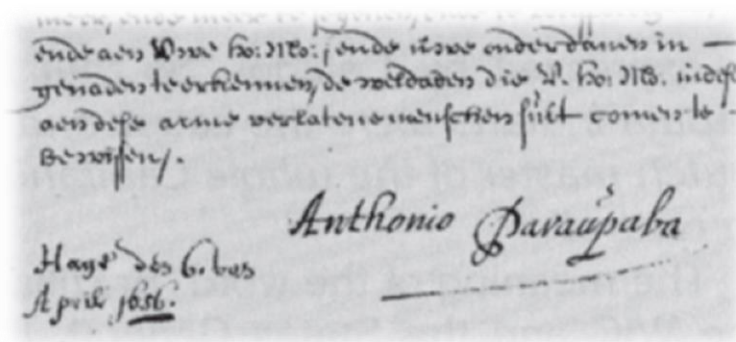 ende aen Uwe ho: Mo: ende uwe onderdanen in
genaden te erkennen, de weldaden die V. ho: Mo. in dese
aen dese arme verlatene menschen sult comen te
bewijsen.
Anthonio Paraupaba
Hage den 6. des
April 1656.